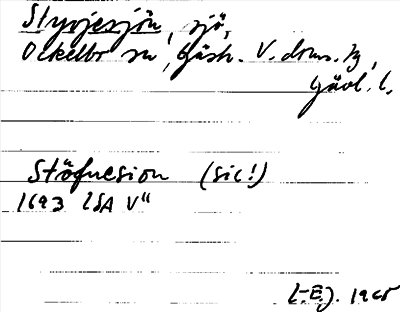 Styvjesjön, sjö,
Ockelbo sn, Gästr. V. doms. tg,
Gävl. l.
Stöfuesion (sic!)
1693 LSA V 11
L-E.J. 1965